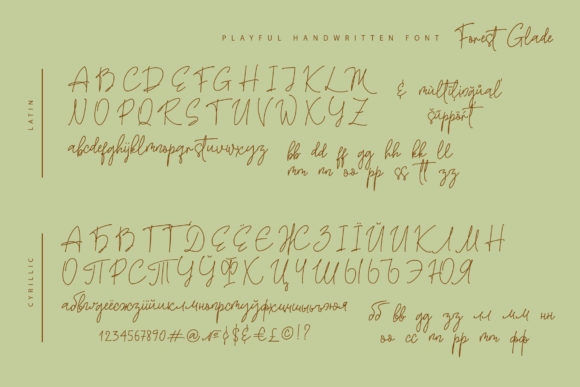 PLAYFUL HANDWRITTEN FONT Forest Glade
LATIN
A B C D E F G H I J K L M
N O P Q R S T U V W X Y Z
abcdefghijklmnopqrstuvwxyz
& multilingual
support
bb dd ff gg hh kk ll
mm nn oo pp ss tt zz
CYRILLIC
А Б В Г Г Д Е Ё Є Ж З І Ї Й И К Л М Н
О П Р С Т У Ў Ф Х Ц Ч Ш Ы Ь Ъ Э Ю Я
1234567890#@№¢$&€£©!?
бб вв gg зз лл мм нн
оо сс пп тт фф